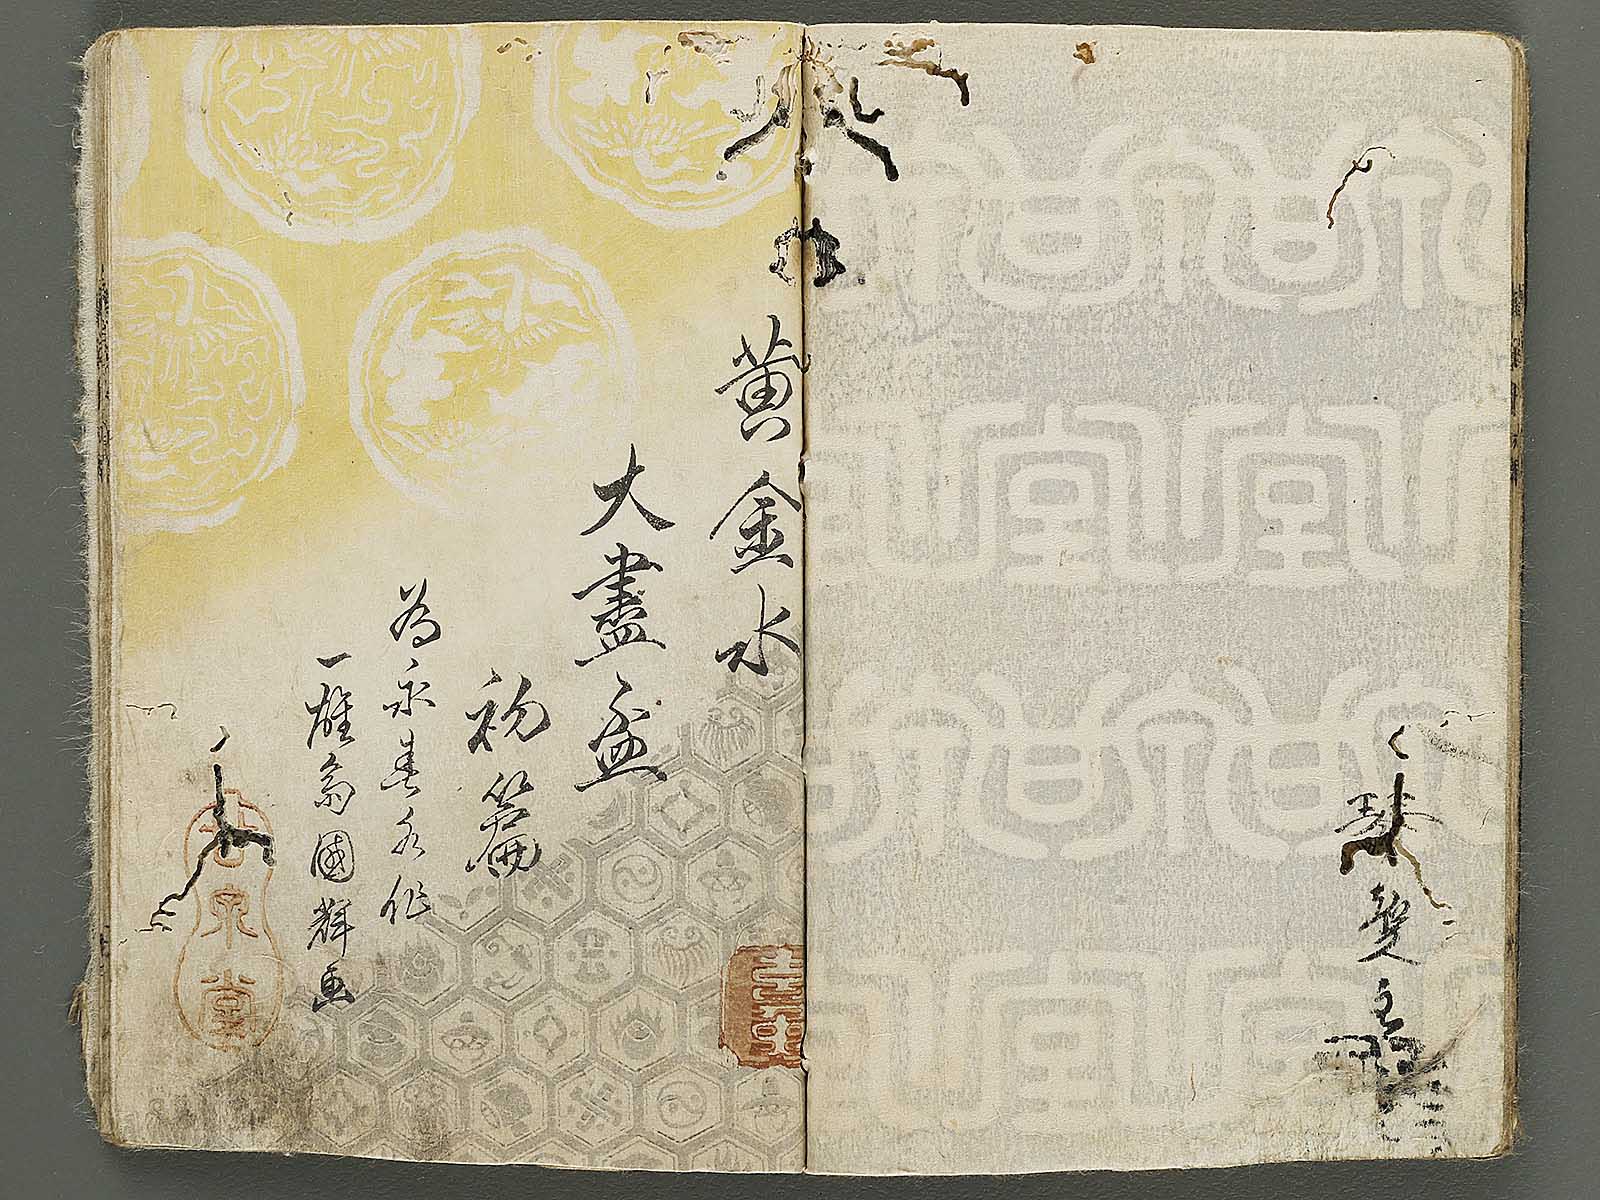 黄金水
大盡盃
初篇
為永春水作
一雄齋國輝画